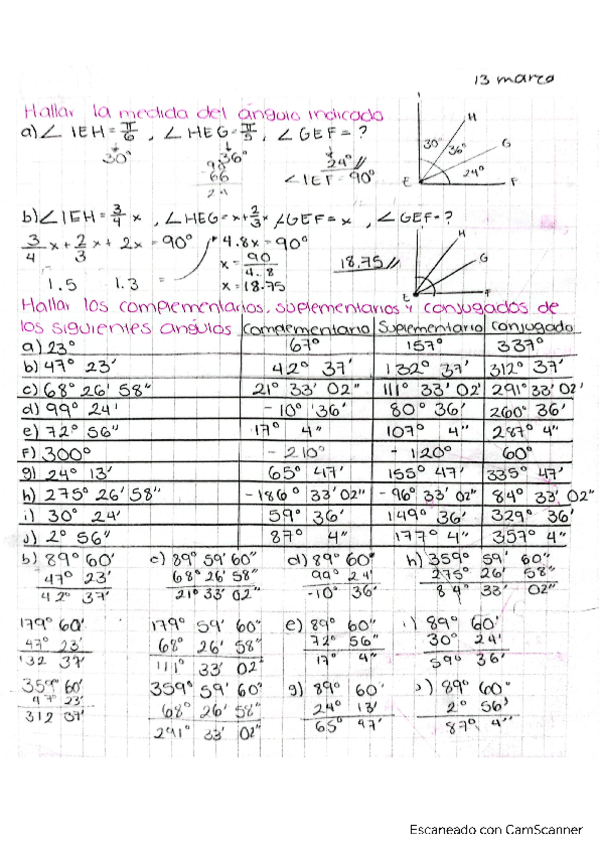 13 marzo
Hallar la medida del ángulo indicado
a) ∠ IEH = π/6 , ∠ HEG = π/5 , ∠ GEF = ?
30° 36° 24°
∠ IEF = 90°
H
30° 36° G
24°
E F
b) ∠IEH = 3/4 x , ∠HEG = x + 2/3 x , ∠GEF = x , ∠ GEF = ?
3/4 x + 2/3 x + 2x = 90° 4.8x = 90°
x = 90/4.8 18.75
1.5 1.3 x = 18.75
H
G
E F
Hallar los complementarios, suplementarios y conjugados de
los siguientes angulos complementario Suplementario conjugado
a) 23° 67° 157° 337°
b) 47° 23' 42° 37' 132° 37' 312° 37'
c) 68° 26' 58" 21° 33' 02" 111° 33' 02' 291° 33' 02'
d) 99° 24' -10° 36' 80° 36' 260° 36'
e) 72° 56" 17° 4" 107° 4" 287° 4"
f) 300° - 210° - 120° 60°
g) 24° 13' 65° 47' 155° 47' 335° 47'
h) 275° 26' 58" -186° 33' 02" -96° 33' 02" 84° 33' 02"
i) 30° 24' 59° 36' 149° 36' 329° 36'
j) 2° 56" 87° 4" 177° 4" 357° 4"
b) 89° 60' c) 89° 59' 60" d) 89° 60° h) 359° 59' 60"
47° 23' 68° 26' 58" 99° 24' 275° 26' 58"
42° 37' 21° 33' 02" -10° 36' 84° 33' 02"
179° 60' 179° 59' 60" e) 89° 60" i) 89° 60'
47° 23' 68° 26' 58" 72° 56" 30° 24'
132 37' 111° 33' 02 17° 4" 59° 36'
359° 60' 359° 59' 60° g) 89° 60' 89° 60°
47° 23' 68° 26' 58" 24° 13' 2° 56'
312 37' 291° 33' 02" 65° 47' 87° 4"
Escaneado con CamScanner